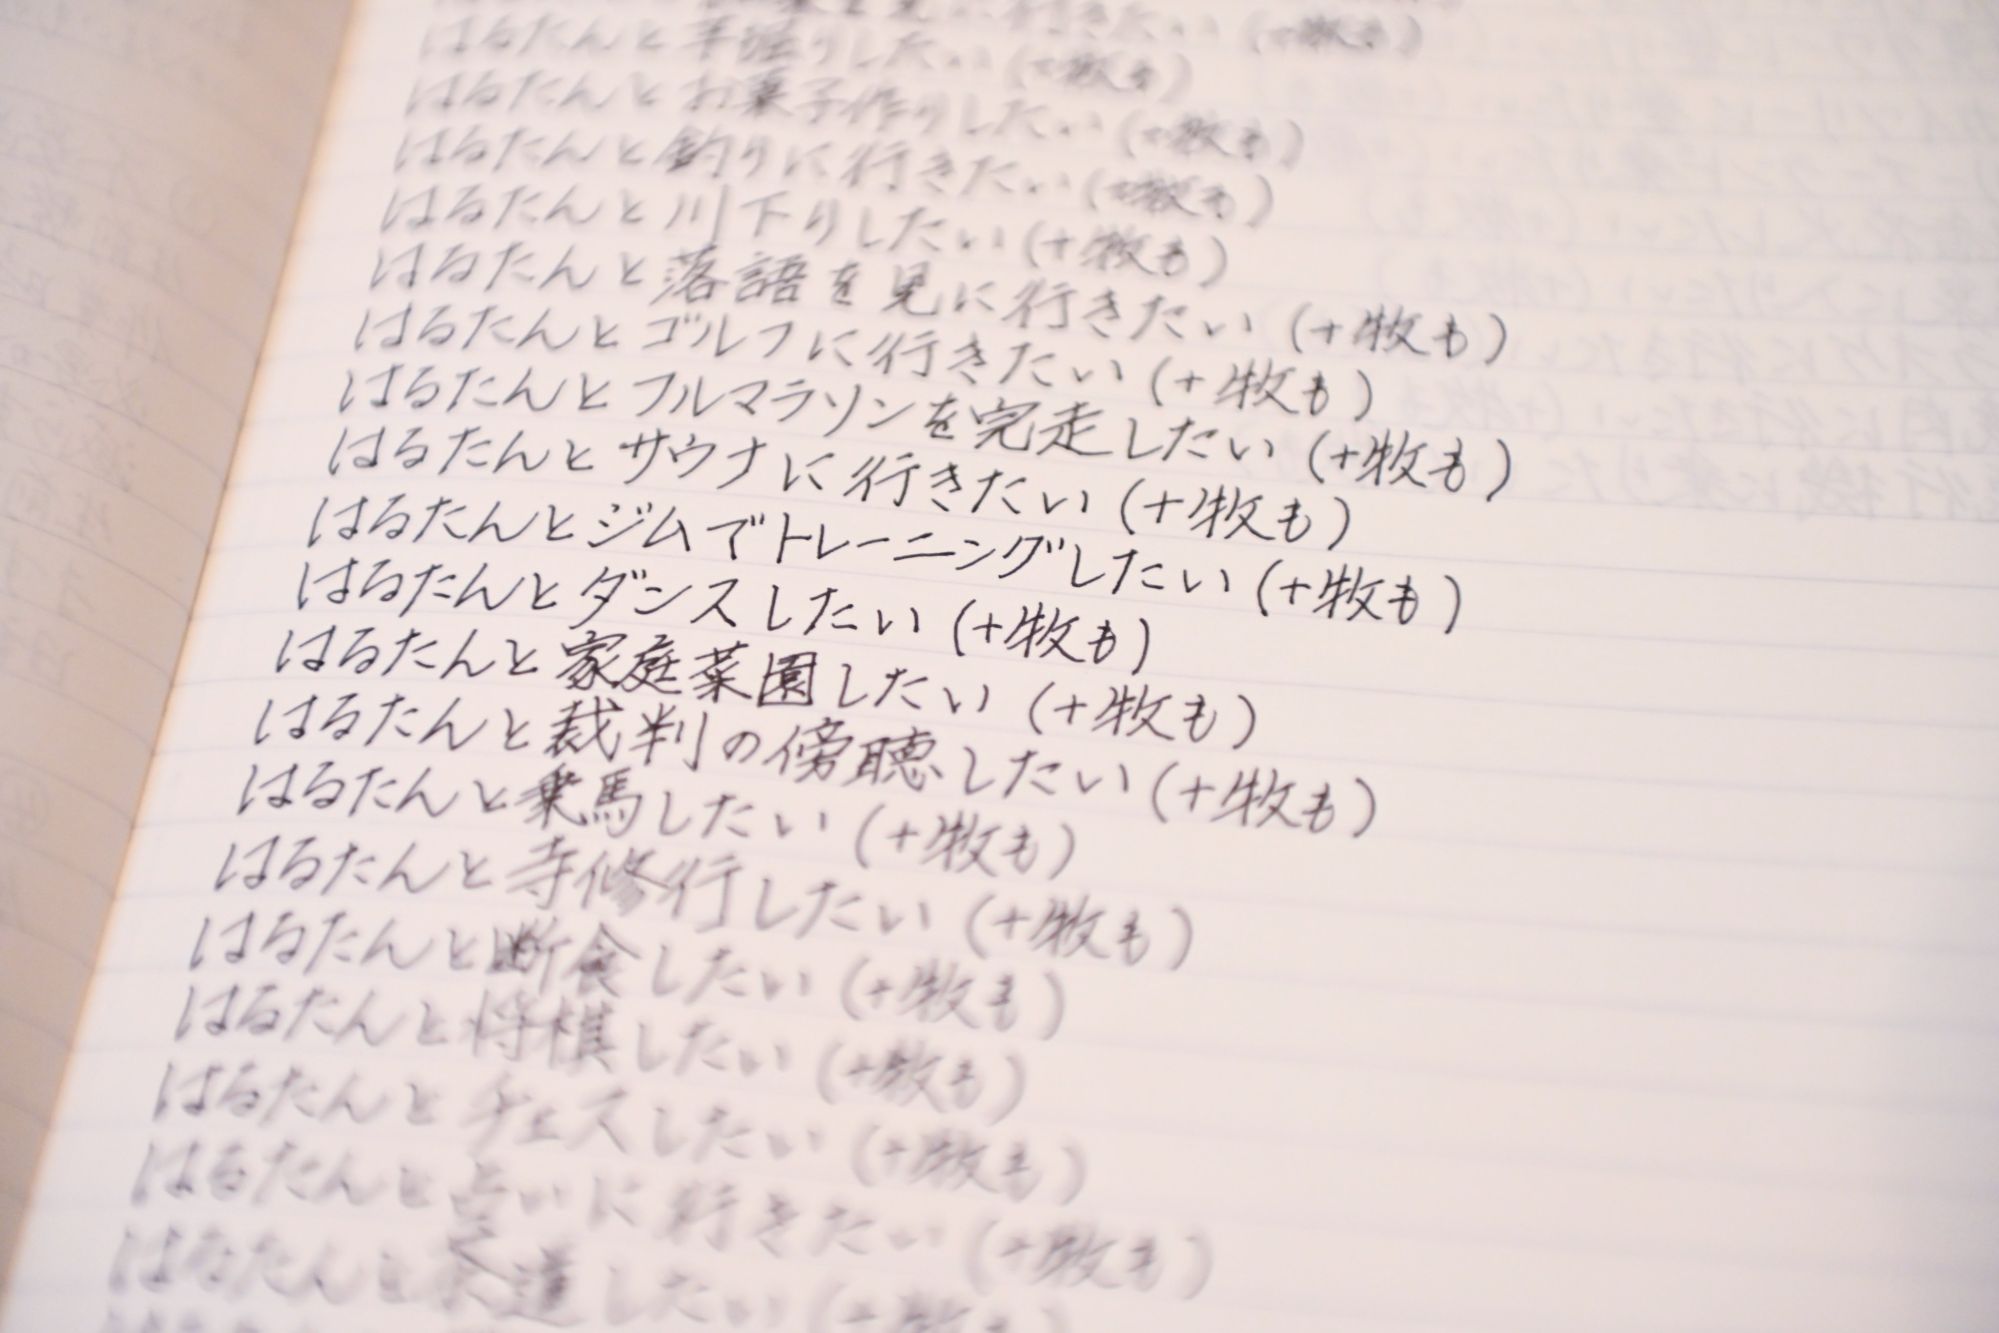 見に行きたい(+牧も)
はるたんと芋堀りしたい(+牧も)
はるたんとお菓子作りしたい(+牧も)
はるたんと釣りに行きたい(+牧も)
はるたんと川下りしたい(+牧も)
はるたんと落語を見に行きたい(+牧も)
はるたんとゴルフに行きたい(+牧も)
はるたんとフルマラソンを完走したい(+牧も)
はるたんとサウナに行きたい(+牧も)
はるたんとジムでトレーニングしたい(+牧も)
はるたんとダンスしたい(+牧も)
はるたんと家庭菜園したい(+牧も)
はるたんと裁判の傍聴したい(+牧も)
はるたんと乗馬したい(+牧も)
はるたんと寺修行したい(+牧も)
はるたんと断食したい(+牧も)
はるたんと将棋したい(+牧も)
はるたんとチェスしたい(+牧も)
はるたんと占いに行きたい(+牧も)
はるたんと茶道したい(+牧も)